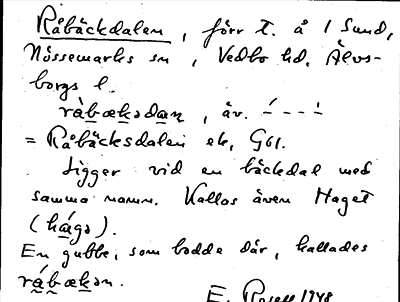 Råbäckdalen, förr t. å 1 Sund,
Nössemarks sn, Vedbo hd, Älvs-
borgs l.
ràbækədan, äv. ́- - - - ̀
= Råbäcksdalen ek, G61.
Ligger vid en bäckdal med
samma namn. Kallas även Haget
(hágə).
En gubbe, som bodde där, kallades
rábækən.
E. Rosell 1948